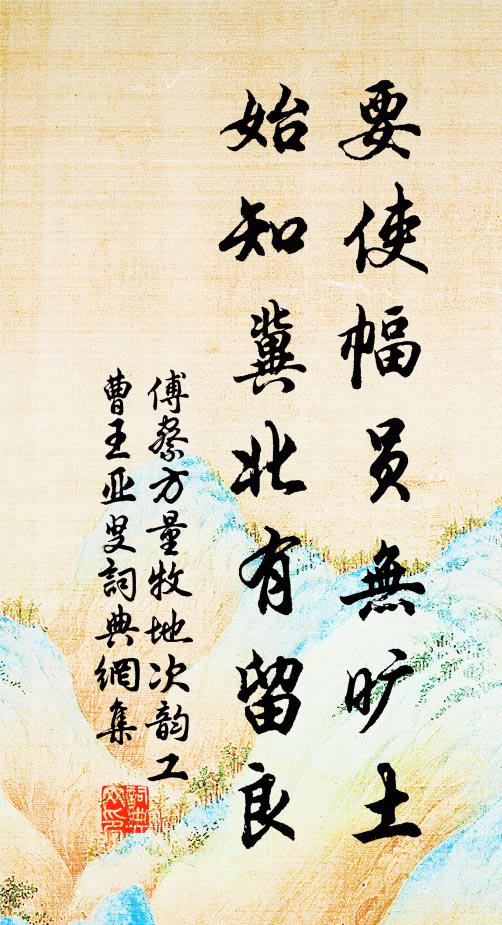 要使幅员無旷土
始知冀北有留良
傅察方量牧地次韵工
曹王亚叟詞典網集